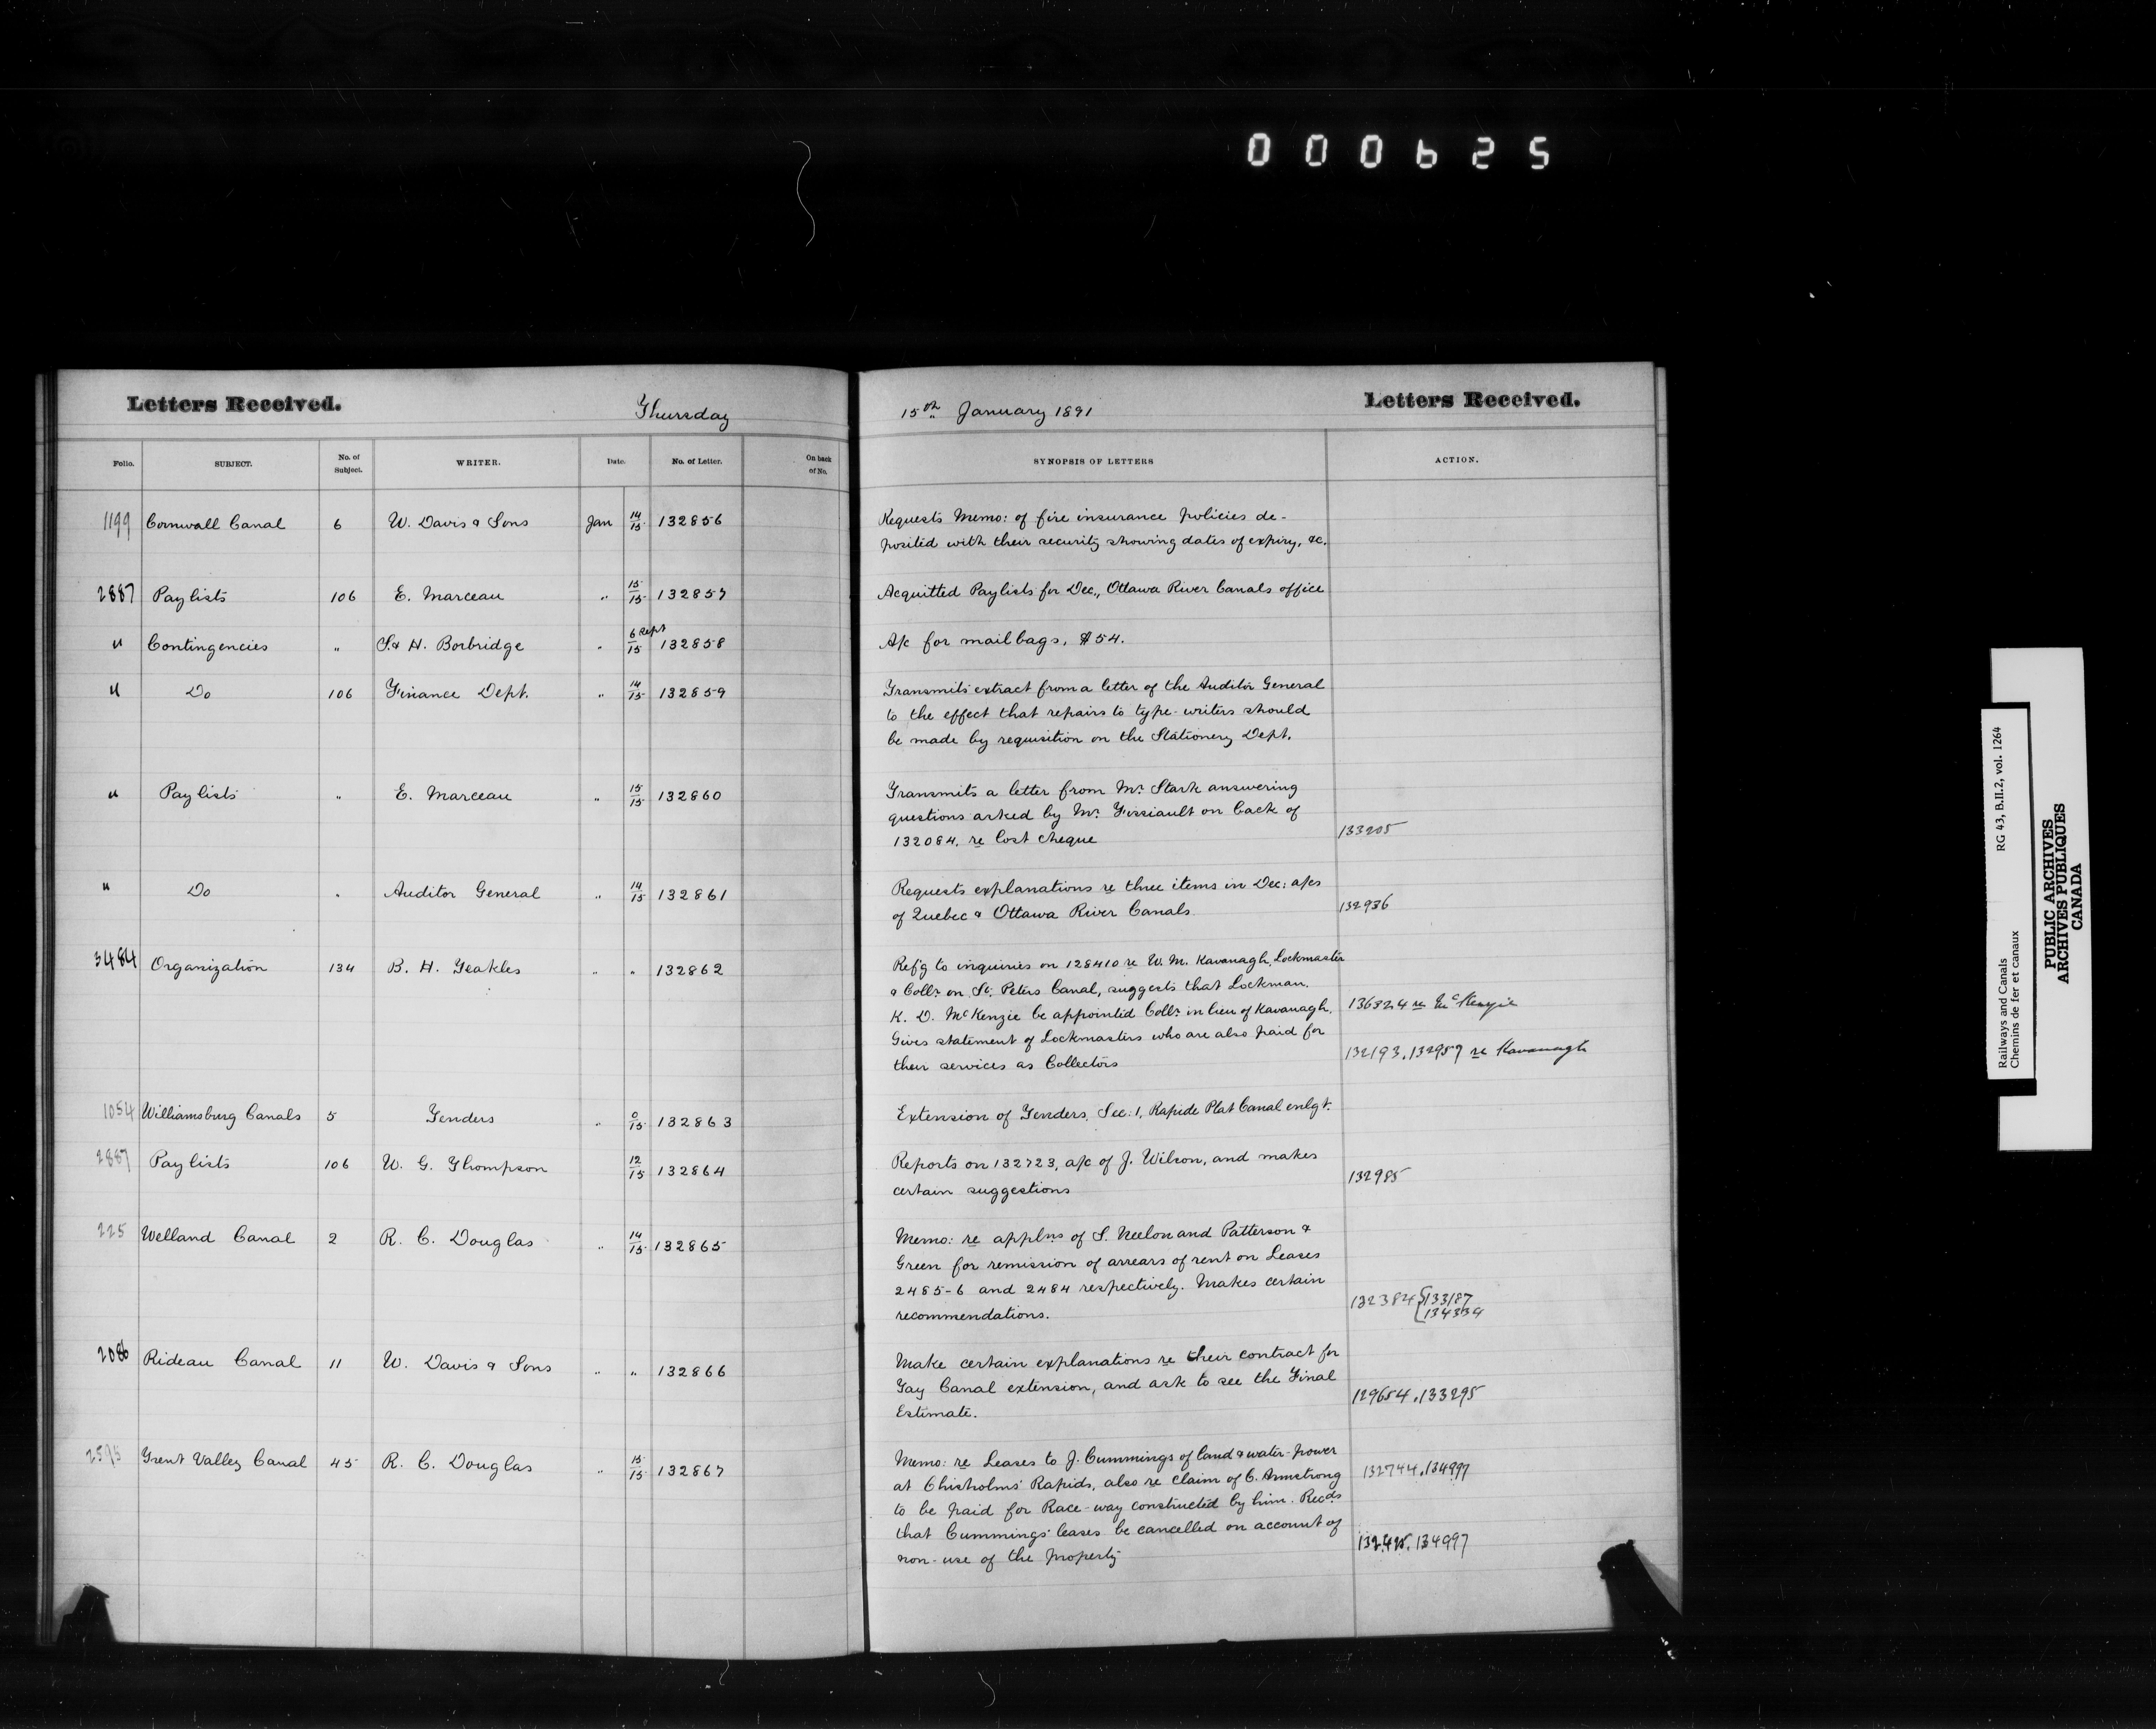 000625
Letters Received.
Thursday
15th January 1891
Letters Received.
Folio. SUBJECT. No. of Subject. WRITER. Date. No. of Letter. On back of No. SYNOPSIS OF LETTERS ACTION.
1199 Cornwall Canal 6 W. Davis & Sons Jan 14/15 132856 Requests Memo: of fire insurance policies de-
posited with their security showing dates of expiry, &c.
2887 Paylists 106 E. Marceau " 15/15 132857 Acquitted Paylists for Dec., Ottawa River Canals office
" Contingencies " S. & H. Borbridge " 6 Sept/15 132858 A/c for mail bags, $54.
" Do 106 Finance Dept. " 14/15 132859 Transmits extract from a letter of the Auditor General
to the effect that repairs to type-writers should
be made by requisition on the Stationery Dept.
" Paylists " E. Marceau " 15/15 132860 Transmits a letter from Mr. Stark answering
questions asked by Mr. Fissiault on back of
132084, re lost cheque 133205
" Do " Auditor General " 14/15 132861 Requests explanations re three items in Dec: a/cs
of Quebec & Ottawa River Canals 132936
3484 Organization 134 B. H. Teakles " " 132862 Ref'g to inquiries on 128410 re W. M. Kavanagh, Lockmaster
& Collr. on St. Peters Canal, suggests that Lockman
K. D. McKenzie be appointed Collr. in lieu of Kavanagh. 136324 re McKenzie
Gives statement of Lockmasters who are also paid for
their services as Collectors 132193, 132959 re Kavanagh
1054 Williamsburg Canals 5 Tenders " 0/15 132863 Extension of Tenders, Sec: 1, Rapide Plat Canal enlgt.
2887 Paylists 106 W. G. Thompson 12/15 132864 Reports on 132723, a/c of J. Wilson, and makes
certain suggestions 132985
225 Welland Canal 2 R. C. Douglas " 14/15 132865 Memo: re applns of S. Neelon and Patterson &
Green for remission of arrears of rent on Leases
2485-6 and 2484 respectively. Makes certain
recommendations. 132384 { 133187
134334
2086 Rideau Canal 11 W. Davis & Sons " " 132866 Make certain explanations re their contract for
Tay Canal extension, and ask to see the Final
Estimate. 129654, 133295
2595 Trent Valley Canal 45 R. C. Douglas " 15/15 132867 Memo: re Leases to J. Cummings of land & water-power
at Chisholms' Rapids, also re claim of C. Armstrong 132744, 134997
to be paid for Race-way constructed by him. Recds
that Cummings' leases be cancelled on account of
non-use of the property 134997
Railways and Canals RG 43, B.II.2, vol. 1264
Chemins de fer et canaux
PUBLIC ARCHIVES
ARCHIVES PUBLIQUES
CANADA